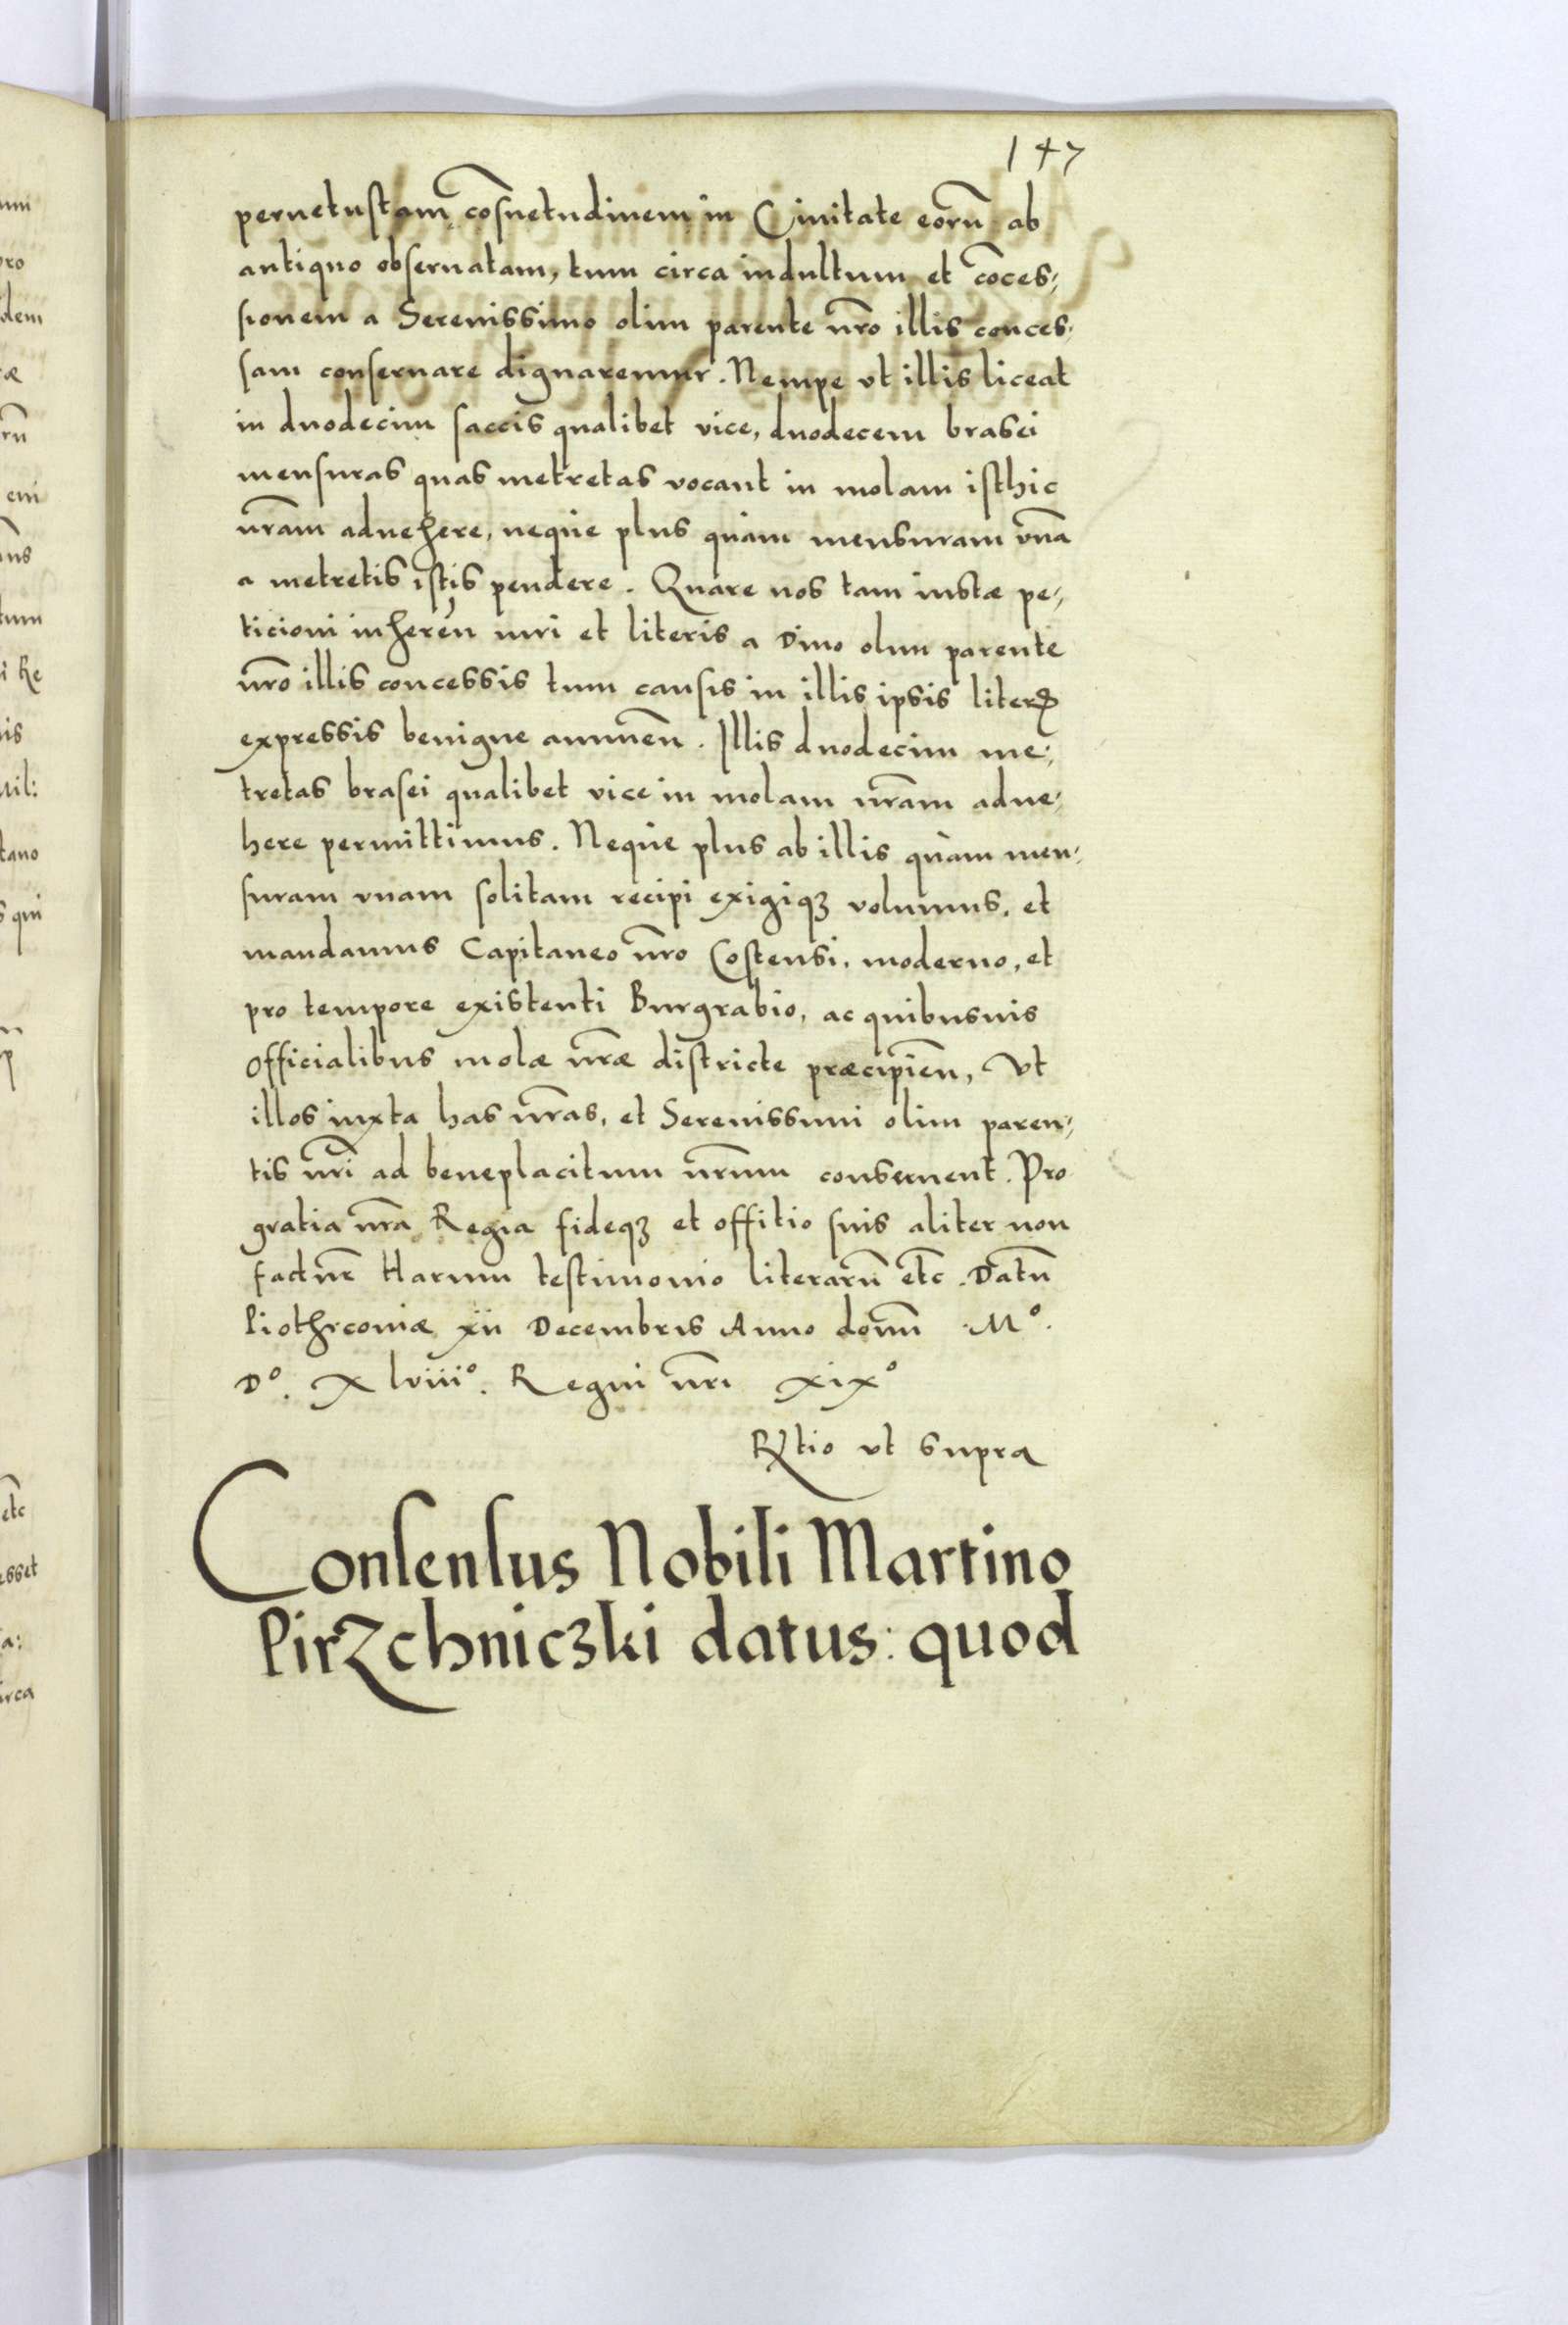 147
peruetustam cōsuetudinem in Ciuitate eorū ab
antiquo obseruatam, tum circa indultum et cōces⸗
sionem a Serenissimo olim parente nr̄o illis conces⸗
sam conseruare dignaremur. Nempe vt illis liceat
in duodecim saccis qualibet vice, duodecem brasei
mensuras quas metretas vocant in molam isthic
nr̄am aduehere, neque plus quàm mensuram vnā
a metretis istis pendere. Quare nos tam iustæ pe⸗
ticioni inherēn iuri et literis a Diuo olim parente
nr̄o illis concessis tum causis in illis ipsis literꝭ
expressis benigne annuēn. Illis duodecim me⸗
tretas brasei qualibet vice in molam nr̄am adue⸗
here permittimus. Neque plus ab illis quàm men⸗
suram vnam solitam recipi exigiqꝫ volumus, et
mandamus Capitaneo nr̄o Costensi, moderno, et
pro tempore existenti Burgrabio, ac quibusuis
officialibus molæ nr̄æ districte præcipiēn, Vt
illos iuxta has nr̄as, et Serenissimi olim paren⸗
tis nr̄i ad beneplacitum nr̄um conseruent. Pro
gratia nr̄a Regia fideqꝫ et offitio suis aliter non
factur̄ Harum testimonio literarū etc̄. Datū
Piothrconiæ xii Decembris Anno domī M°.
D°. Xlviii°. Regni nr̄i xix°
Rꝉtio vt supra
Consensus Nobili Martino
Pirzchniczki datus: quod